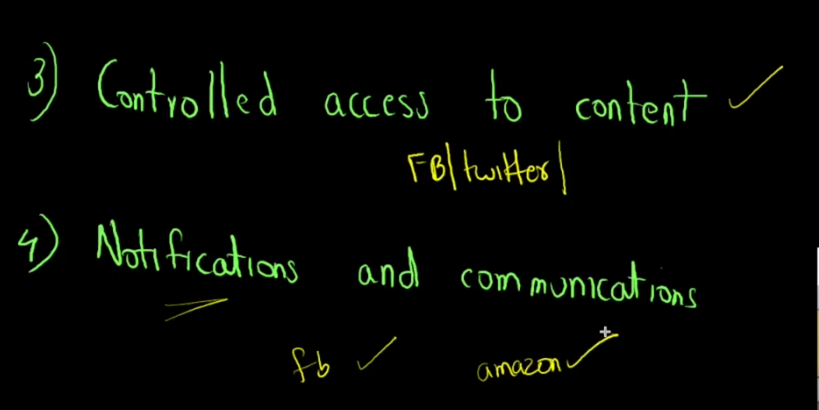 3) Controlled access to content
FB|twitter|
4) Notifications and communications
fb amazon